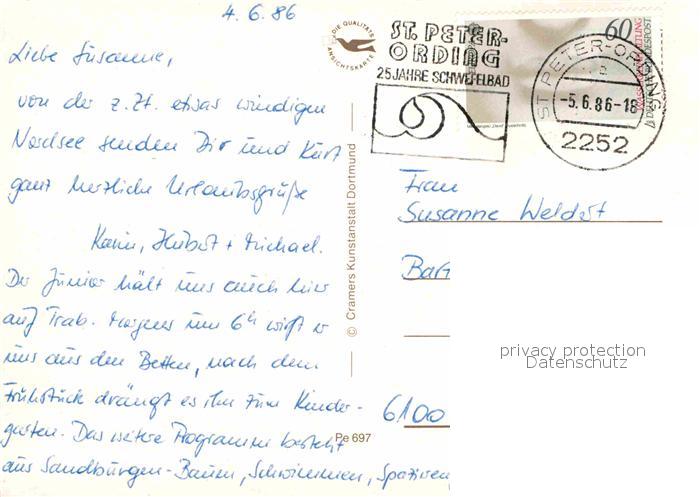 4.6.86
Liebe Susanne,
von der z.Zt. etwas windigen
Nordsee senden Dir und Kurt
ganz herzliche Urlaubsgrüße
Karin, Hubert + Michael.
Der Junior hält uns auch hier
auf Trab. Morgens um 6h wirft er
uns aus den Betten, nach dem
Frühstück drängt es ihn zum Kinder-
garten. Das weitere Programm besteht
aus Sandburgen-Bauen, Schwimmen, Spazieren
DIE QUALITÄTS
ANSICHTSKARTE
© Cramers Kunstanstalt Dortmund
Pe 697
ST. PETER-
ORDING
25 JAHRE SCHWEFELBAD
60
ST PETER-ORDING
-5.6.86-18
2252
Frau
Susanne Weldert
6100
privacy protection
Datenschutz